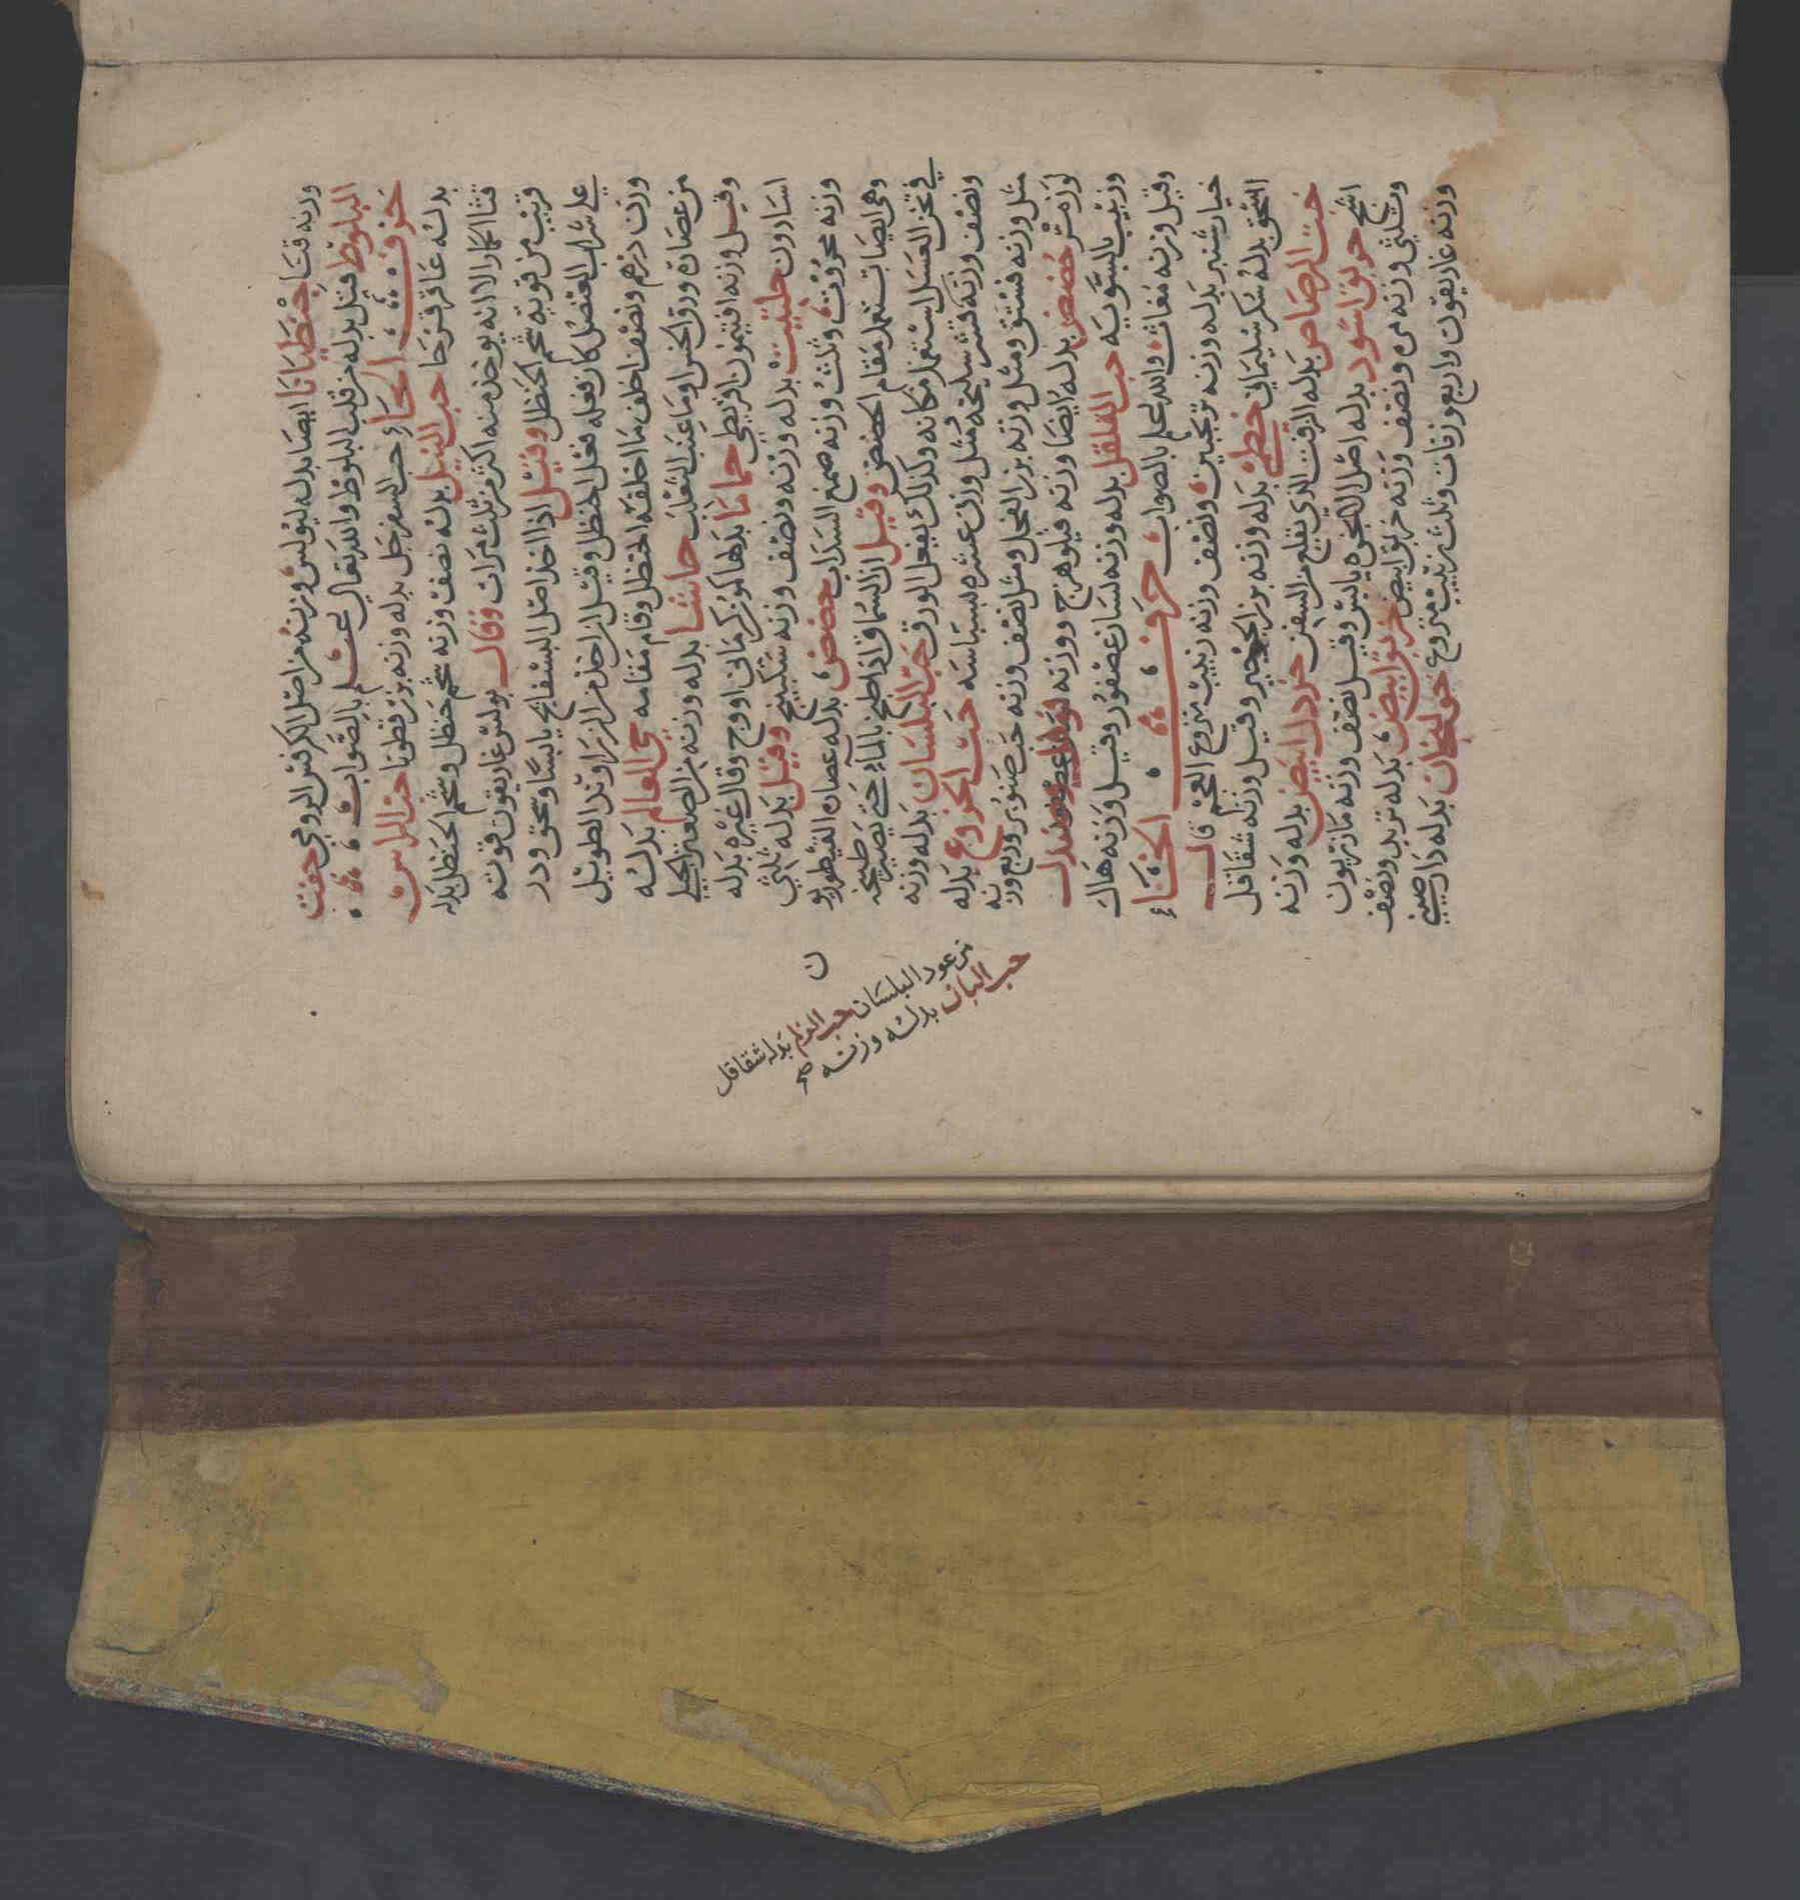 وزنه قنا جنطيانا ايضا بدله ليولس وزنه من اصل الكرفس الرومي جفت
البلوط قيل بدله من قلب البلوط والله تعالى اعلم بالصواب
حرف الحاء حب السفرجل بدله وزنه بزر قطونا حب الراس
بدله عاقر قرحا حب النيل بدله نصف وزنه شحم حنظل وشحم الحنظل بدله
قثا الحمار الا انه يوخذ منه اكثر من ثلث مرات وقال بولس غاريقون قوته
قريب من قوته شحم الحنظل وقيل اذا اخذ اصل البسفايج يابسا وسحق ودر
على شراب العنصل كان فعله فعل الحنظل وقيل ان اخذ من الزراوند الطويل
وزن درهم ونصف اخلف ما اخلفه الحنظل وقام مقامه حي العالم بدله
من عصارة ورق الخس او ما عنب الثعلب حاشا بدله وزنه من الصعتر الجبلي
وقيل وزنه افتيمون اقريطي حماما بدلها كمون كرماني او وج وقال غيره بدله
اسارون حلتيت بدله وزنه ونصف وزنه سكبينج وقيل بدله ثلثي
وزنه محروت وثلث وزنه صمغ السذاب حضض بدله عصاره القنطوريو
ن
وهي ايضا تستعمل مقام الحضض وقيل ان السماق اذا طبخ بالماء حتى يصير طبيخه
في ثخن العسل استعمل مكانه وكذلك يفعل الورق حب البلسان بدله وزنه
ونصف وزنه قشر سليخه ومثل وزن عشره بسباسه حب الخروع بدله
مثل وزنه فستق ومثل وزنه بزر الفجل ومثل نصف وزنه حب صنوبر وربع وزنه
لوز مقشر حضض بدله ايضا وزنه فيلوهرج ووزنه صندل
وزبيب بالسويه حب القلقل بدله وزنه لسان عصفور وقيل وزنه هال
وقيل وزنه مغاث والله اعلم بالصواب حرف الخاء
خيار شنبر بدله وزنه ترنجبين ونصف وزنه زبيب منزوع العجم قال
اسحق بدله سكر سليماني خطمي بدله وزنه بزر الخبير وقيل وزنه شقاقل
خبث الرصاص بدله الزفت الذي يقلع من السفن خردل ابيض بدله وزنه
اشج خربق اسود بدله اصل اللنجره يابس وقيل نصف وزنه مازريون
وثلثي وزنه مره ونصف وزنه خربق ابيض خربق ابيض بدله تربد ونصف
وزنه غاريقون واربع وزنات وثلث زبيب منزوع خولنجان بدله دارصيني
حب البان بدله وزنه
من عود البلسان حب الزلم بدله شقاقل